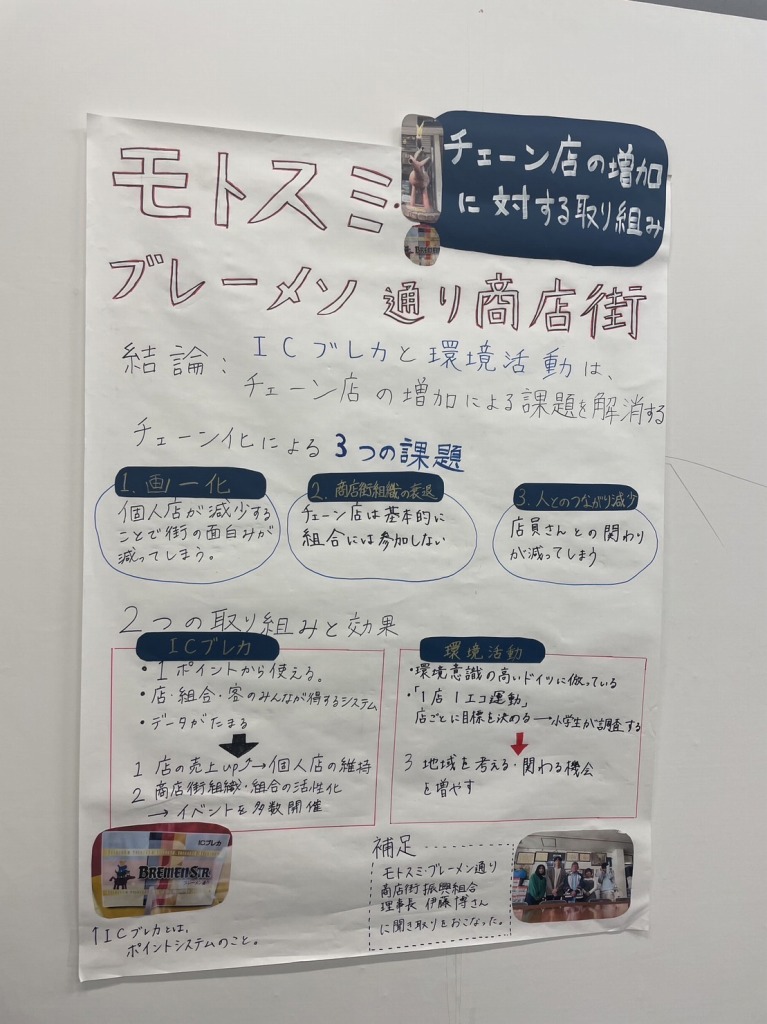 モトスミ・
ブレーメン通り商店街
チェーン店の増加
に対する取り組み
結論：ICブレカと環境活動は、
チェーン店の増加による課題を解消する
チェーン化による3つの課題
1.画一化
個人店が減少する
ことで街の面白みが
減ってしまう。
2.商店街組織の衰退
チェーン店は基本的に
組合には参加しない
3.人とのつながり減少
店員さんとの関わり
が減ってしまう
2つの取り組みと効果
ICブレカ
・1ポイントから使える。
・店・組合・客のみんなが得するシステム
・データがたまる
1 店の売上up⤴→個人店の維持
2 商店街組織・組合の活性化
→イベントを多数開催
環境活動
・環境意識の高いドイツに倣っている
・「1店1エコ運動」
店ごとに目標を決める→小学生が調査する
3 地域を考える・関わる機会
を増やす
ICブレカ
BREMENSTR
↑ICブレカとは、
ポイントシステムのこと。
補足
モトスミ・ブレーメン通り
商店街振興組合
理事長 伊藤博さん
に聞き取りをおこなった。